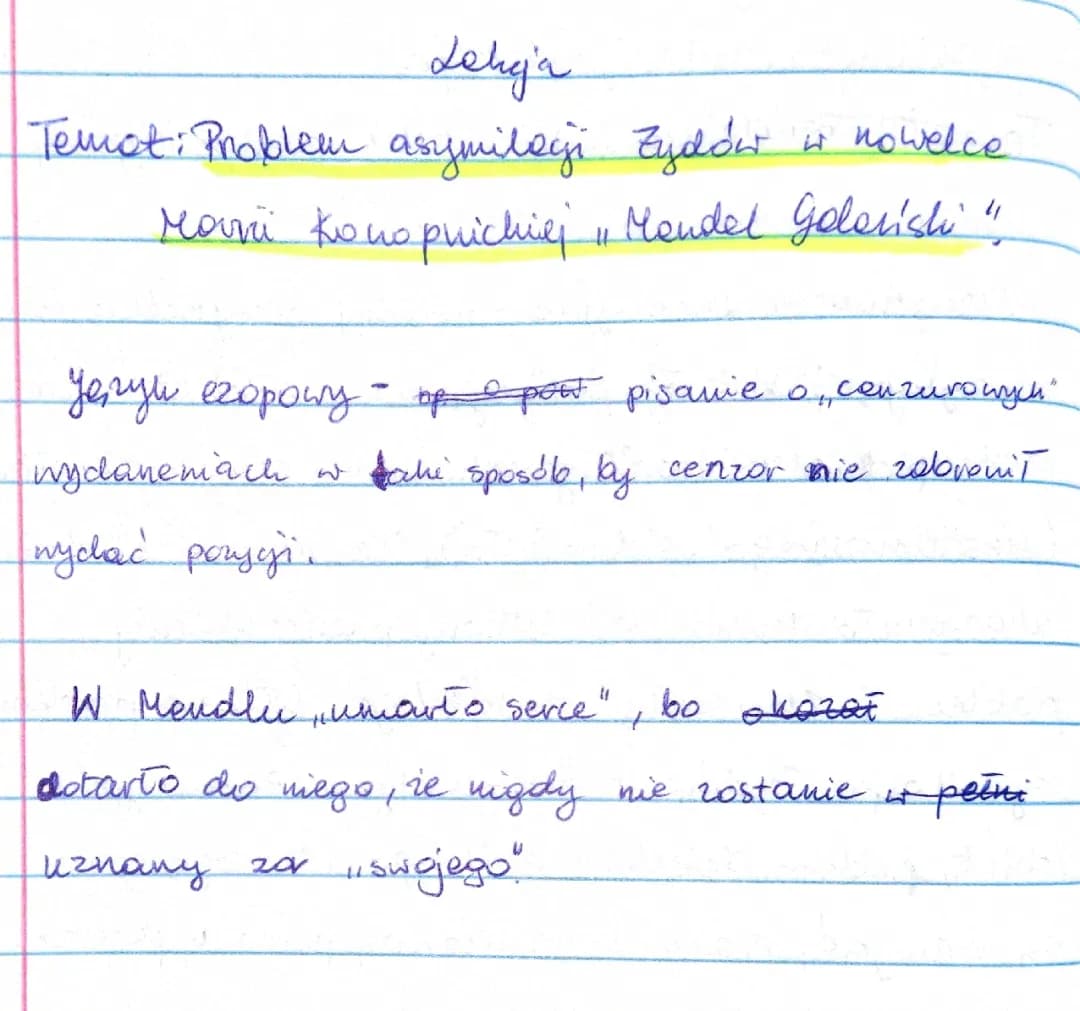 Lekcja
Temat: Problem asymilacji Żydów w nowelce
Marii Konopnickiej „Mendel Gdański".
Język ezopowy - pisanie o „cenzurowych"
wydarzeniach w taki sposób, by cenzor nie zabronił
wydać pozycji.
W Mendlu „umarło serce", bo okazał
dotarło do niego, że nigdy nie zostanie w pełni
uznany za „swojego".